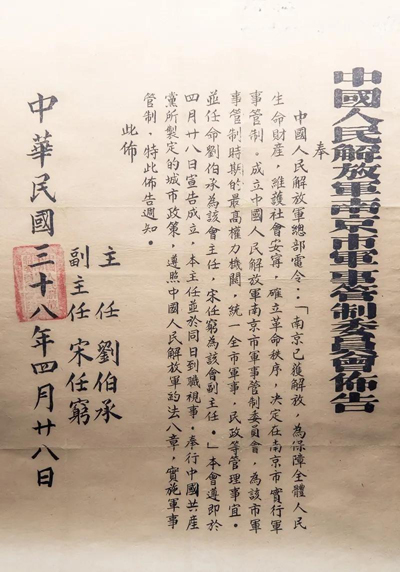 中國人民解放軍南京市軍事管制委員會佈告
奉
中國人民解放軍總部電令：「南京已獲解放，為保障全體人民
生命財產，維護社會安寧，確立革命秩序，決定在南京市實行軍
事管制，成立中國人民解放軍南京市軍事管制委員會，為該市軍
事管制時期的最高權力機關，統一全市軍事，民政等管理事宜。
並任命劉伯承為該會主任，宋任窮為該會副主任。」本會遵即於
四月廿八日宣告成立，本主任並於同日到職視事。奉行中國共產
黨所製定的城市政策，遵照中國人民解放軍約法八章，實施軍事
管制，特此佈告週知。
此佈
主任 劉伯承
副主任 宋任窮
中華民國三十八年四月廿八日